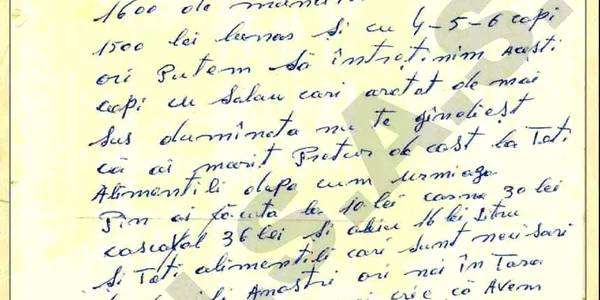 1600 de
1500 lei lunas și cu 4-5-6 copi
ori Putem să întrținim acesti
copi cu Salau cari arătat de mai
sus dumînata nu te gîndiest
că ai marit Preturi de cost la Toti
Alimentili dupa cum urmiaza
Pin ai făcuta la 10 lei carne 30 lei
cascaval 36 lei și uliu 16 lei Litru
și Toti alimentili cari sunt necisari
Anostri ori noi în Tara
Avem